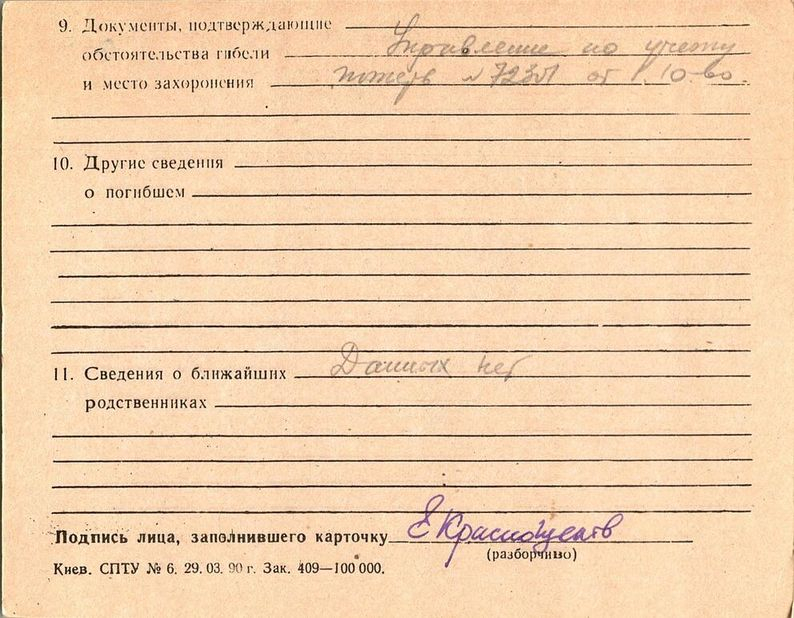 9. Документы, подтверждающие
обстоятельства гибели Управление по учету
и место захоронения потерь № от 10
10. Другие сведения
о погибшем
11. Сведения о ближайших Данных нет
родственниках
Подпись лица, заполнившего карточку Е
(разборчиво)
Киев. СПТУ № 6. 29. 03. 90 г. Зак. 409—100 000.